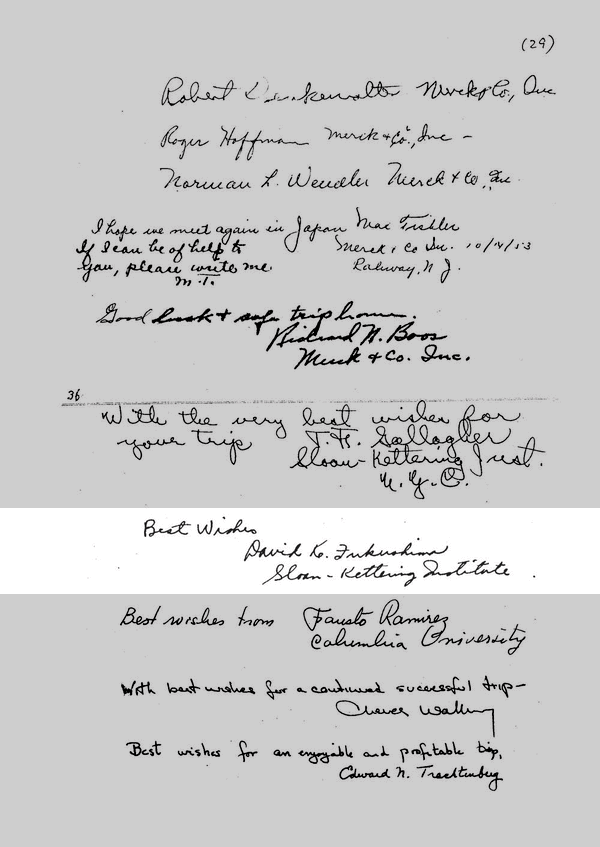 (29)
Robert Denkewalter Merck & Co., Inc
Roger Hoffman Merck & Co., Inc –
Norman L. Wendler Merck & Co., Inc.
I hope we meet again in Japan Max Tishler
If I can be of help to
you, please write me
M.T.
Merck & Co Inc. 10/14/53
Rahway, N J.
Good luck & safe trip home.
Richard H. Boos
Merck & Co. Inc.
36
With the very best wishes for
your trip T. F. Gallagher
Sloan-Kettering Inst.
N. Y. C.
Best Wishes
David K. Fukushima
Sloan-Kettering Institute
Best wishes from Fausto Ramirez
Columbia University
With best wishes for a continued successful trip–
Cheves Walling
Best wishes for an enjoyable and profitable trip,
Edward N. Trachtenberg